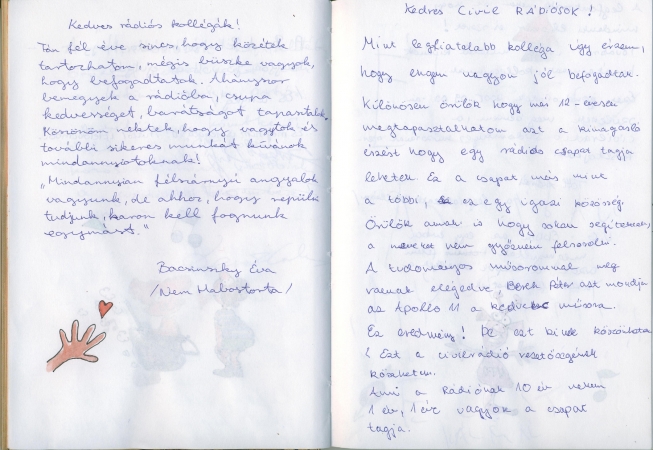 Kedves rádiós kollégák!
Tán fél éve sincs, hogy közétek
tartozhatom, mégis büszke vagyok,
hogy befogadtatok. Ahányszor
bemegyek a rádióba, csupa
kedvességet, barátságot tapasztalok.
Köszönöm nektek, hogy vagytok és
további sikeres munkát kívánok
mindannyiótoknak!
„Mindannyian félszárnyú angyalok
vagyunk, de ahhoz, hogy repülni
tudjunk, karon kell fognunk
egymást."
Éva
/Nem Habostorta/
Kedves Civil RÁDIÓSOK!
Mint legfiatalabb kolléga úgy érzem,
hogy engem nagyon jól befogadtak.
Különösen örülök hogy már 12-évesen
megtapasztalhatom azt a kimagasló
érzést hogy egy rádiós csapat tagja
lehetek. Ez a csapat más mint
a többi, ez egy igazi közösség.
Örülök annak is hogy sokan segítettek,
a neveket nem győzném felsorolni.
A tudományos műsorommal meg
vannak elégedve, Péter azt mondja
az Apolló 11 a kedvenc műsora.
Ez eredmény! De ezt kinek köszönhetem
? Ezt a civilrádió vezetőségének
köszönhetem.
Ami a Rádiónak 10 év nekem
1 év, 1 éve vagyok a csapat
tagja.